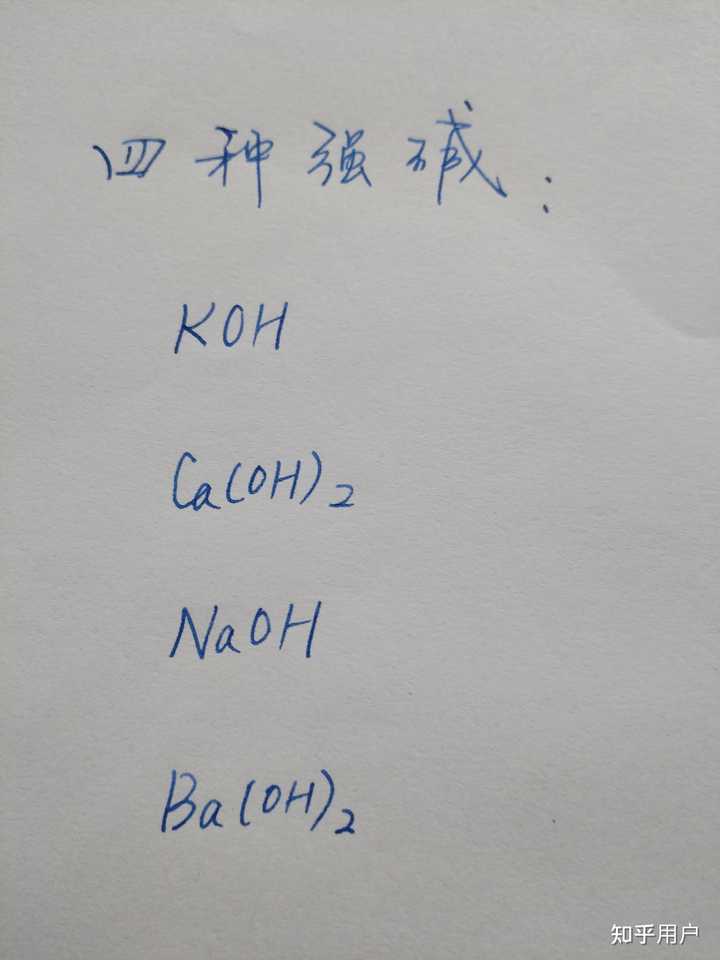 四种强碱:
KOH
Ca(OH)₂
NaOH
Ba(OH)₂
知乎用户